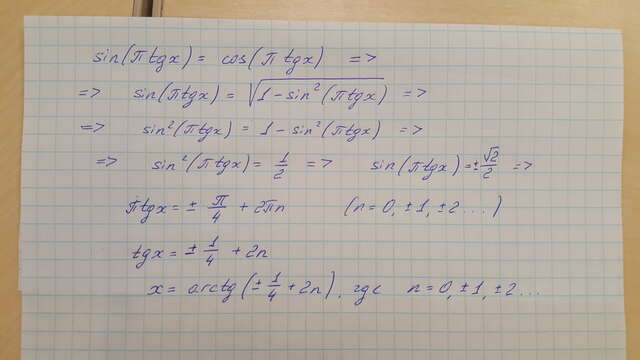 sin(π tgx) = cos(π tgx) =>
=> sin(π tgx) = √1 - sin²(π tgx) =>
=> sin²(π tgx) = 1 - sin²(π tgx) =>
=> sin²(π tgx) = 1/2 => sin(π tgx) = ± √2/2 =>
π tgx = ± π/4 + 2πn (n = 0, ±1, ±2 ....)
tgx = ± 1/4 + 2n
x = arctg(± 1/4 + 2n), где n = 0, ±1, ±2 ...